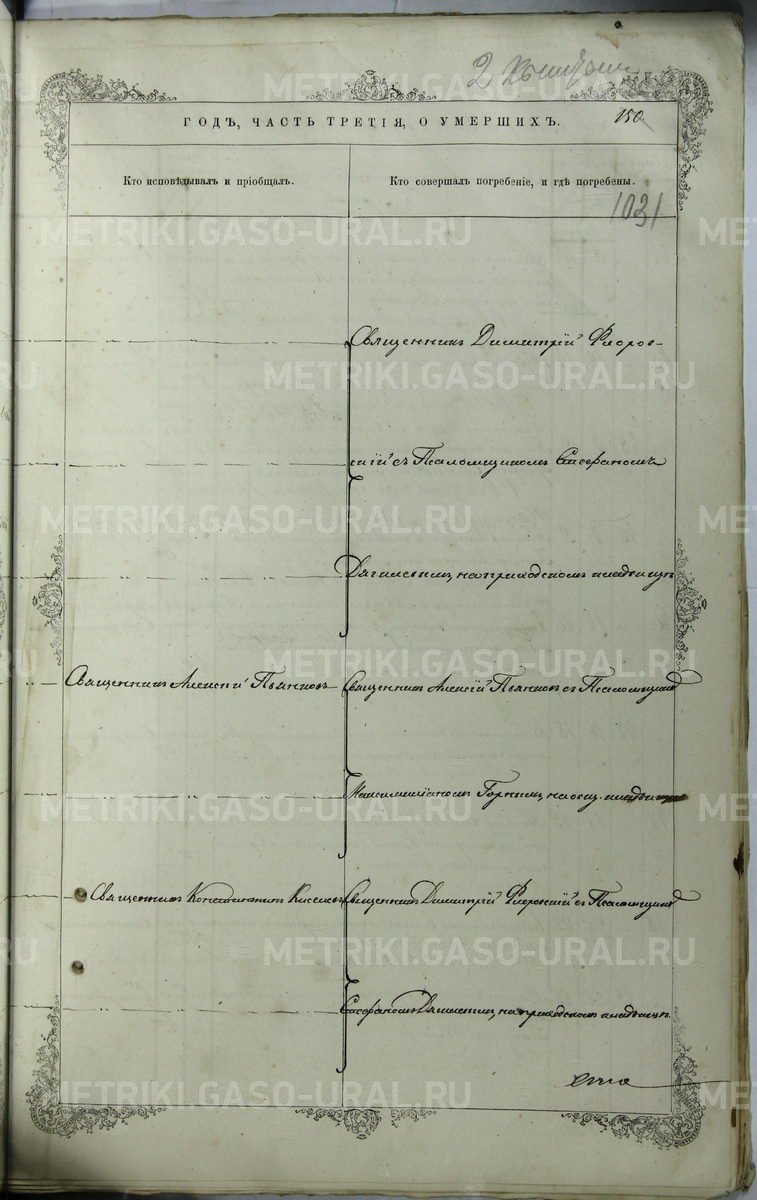 150
ГОДЪ, ЧАСТЬ ТРЕТІЯ, О УМЕРШИХЪ.
Кто исповѣдывалъ и пріобщалъ.
Кто совершалъ погребеніе, и гдѣ погребены.
1031
Священникъ Димитрій Флоров-
скій съ Псаломщикомъ
на приходскомъ кладбищѣ
Священникъ Алексій Пьянковъ
Священникъ Алексій Пьянковъ съ Псаломщикомъ
Максимиліаномъ Горнымъ, на общ. кладбищѣ
Священникъ Константинъ Киселевъ
Священникъ Димитрій Флоровскій съ Псаломщикомъ
на приходскомъ кладбищѣ
METRIKI.GASO-URAL.RU